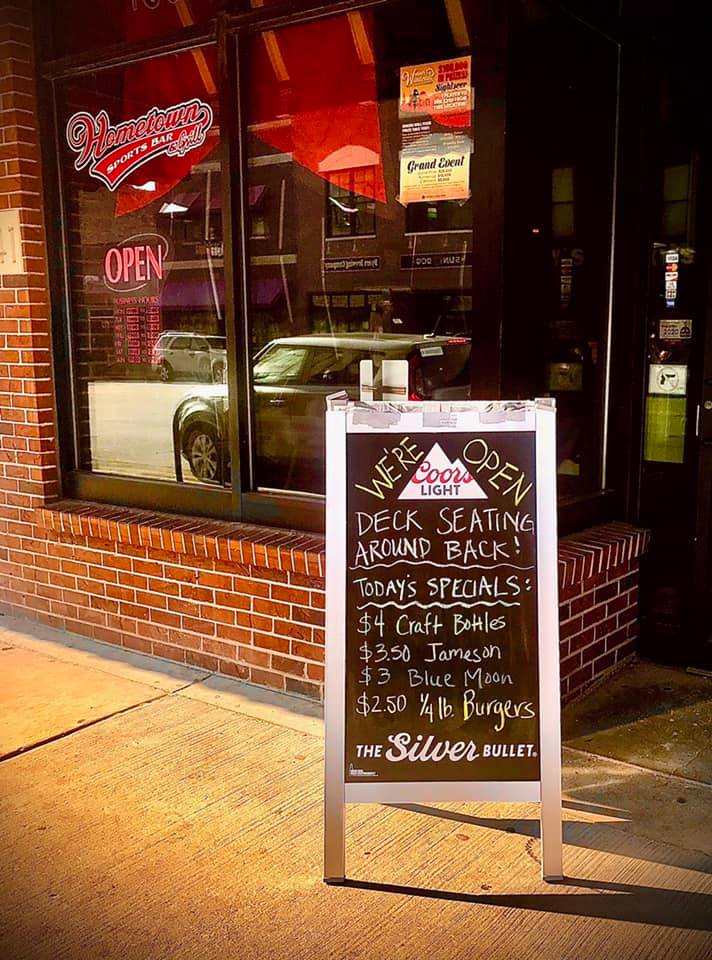 Hometown
SPORTS BAR & Grill
OPEN
BUSINESS HOURS
$100,000
IN PRIZES!
Grand Event
VISA
WE'RE OPEN
Coors
LIGHT
DECK SEATING
AROUND BACK!
TODAY'S SPECIALS:
$4 Craft Bottles
$3.50 Jameson
$3 Blue Moon
$2.50 1/4 lb. Burgers
THE Silver BULLET.